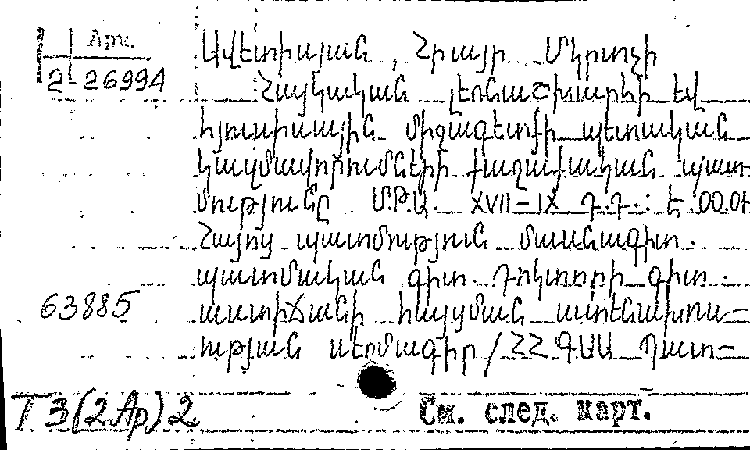 Арм.
2-26994
Ավետիսյան, Հրայր Մկրտչի
Հայկական լեռնաշխարհի եվ
հյուսիսային միջագետքի պետական
կազմավորումների քաղաքական պատ-
մությունը մ.թ.ա. XVII-IX դ.դ.: Է 00.01
Հայոց պատմություն մասնագիտ.
պատմական գիտ. դոկտորի գիտ.
63885 աստիճանի հայցման ատենախոս-
ության սեղմագիր/ՀՀ ԳԱԱ Պատ-
Т 3(2Ар)2
См. след. карт.